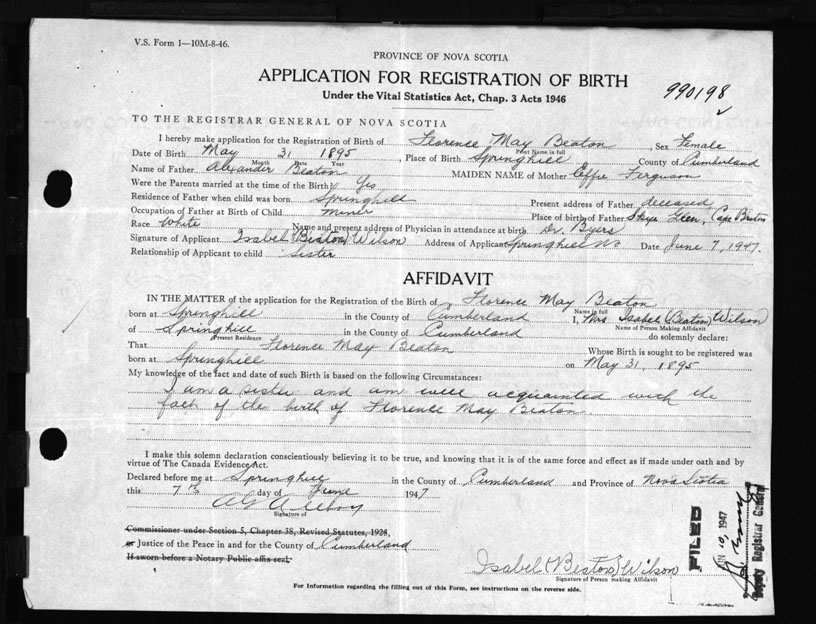 V.S. Form 1—10M-8-46.
PROVINCE OF NOVA SCOTIA
APPLICATION FOR REGISTRATION OF BIRTH
990198
Under the Vital Statistics Act, Chap. 3 Acts 1946
TO THE REGISTRAR GENERAL OF NOVA SCOTIA
I hereby make application for the Registration of Birth of Florence May Beaton Sex Female
Print Name in full
Date of Birth May 31 1895, Place of Birth Springhill County of Cumberland
Month Date Year
Name of Father Alexander Beaton MAIDEN NAME of Mother Effie Ferguson
Were the Parents married at the time of the Birth? Yes
Residence of Father when child was born Springhill Present address of Father deceased
Occupation of Father at Birth of Child miner Place of birth of Father Skye Glen, Cape Breton
Race White Name and present address of Physician in attendance at birth Dr. Byers
Signature of Applicant Isabel (Beaton) Wilson Address of Applicant Springhill NS Date June 7, 1947.
Relationship of Applicant to child Sister
AFFIDAVIT
IN THE MATTER of the application for the Registration of the Birth of Florence May Beaton
Name in full
born at Springhill in the County of Cumberland I, Mrs Isabel (Beaton) Wilson
Name of Person Making Affidavit
of Springhill in the County of Cumberland do solemnly declare:
Present Residence
That Florence May Beaton Whose Birth is sought to be registered was
born at Springhill on May 31, 1895
My knowledge of the fact and date of such Birth is based on the following Circumstances:
I am a sister and am well acquainted with the
fact of the birth of Florence May Beaton.
I make this solemn declaration conscientiously believing it to be true, and knowing that it is of the same force and effect as if made under oath and by
virtue of The Canada Evidence Act.
Declared before me at Springhill in the County of Cumberland and Province of Nova Scotia
this 7th day of June 1947
Signature of
Commissioner under Section 5, Chapter 38, Revised Statutes, 1923,
or Justice of the Peace in and for the County of Cumberland
If sworn before a Notary Public affix seal
Isabel (Beaton) Wilson
Signature of Person making Affidavit
FILED
JUN 10, 1947
Deputy Registrar General
For Information regarding the filling out of this Form, see instructions on the reverse side.